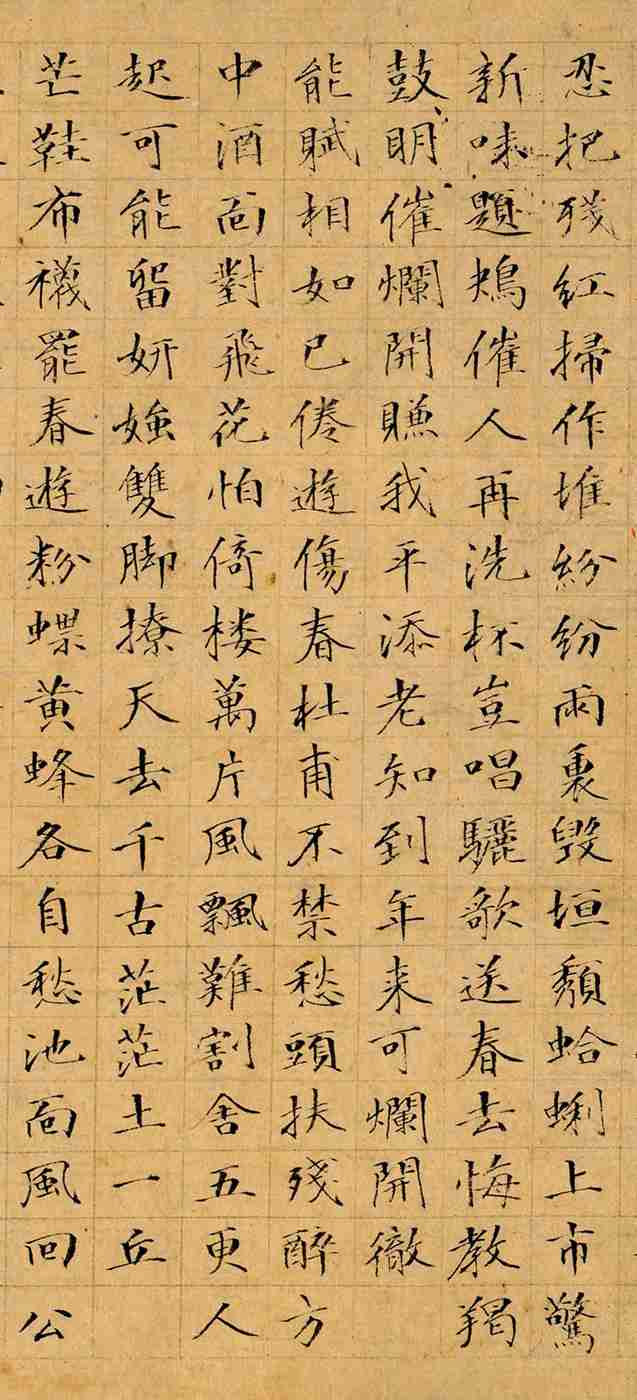 忍把殘紅掃作堆紛紛雨裏毀垣頹蛤蜊上市驚
新味題鴂催人再洗杯豈唱驪歌送春去悔教羯
鼓明催爛開賺我平添老知到年来可爛開徹
能賦相如已倦遊傷春杜甫不禁愁頭扶殘醉方
中酒面對飛花怕倚楼萬片風飄難割舍五更人
起可能留妍媸雙脚撩天去千古茫茫土一丘
芒鞋布襪罷春遊粉蝶黄蜂各自愁池面風回公